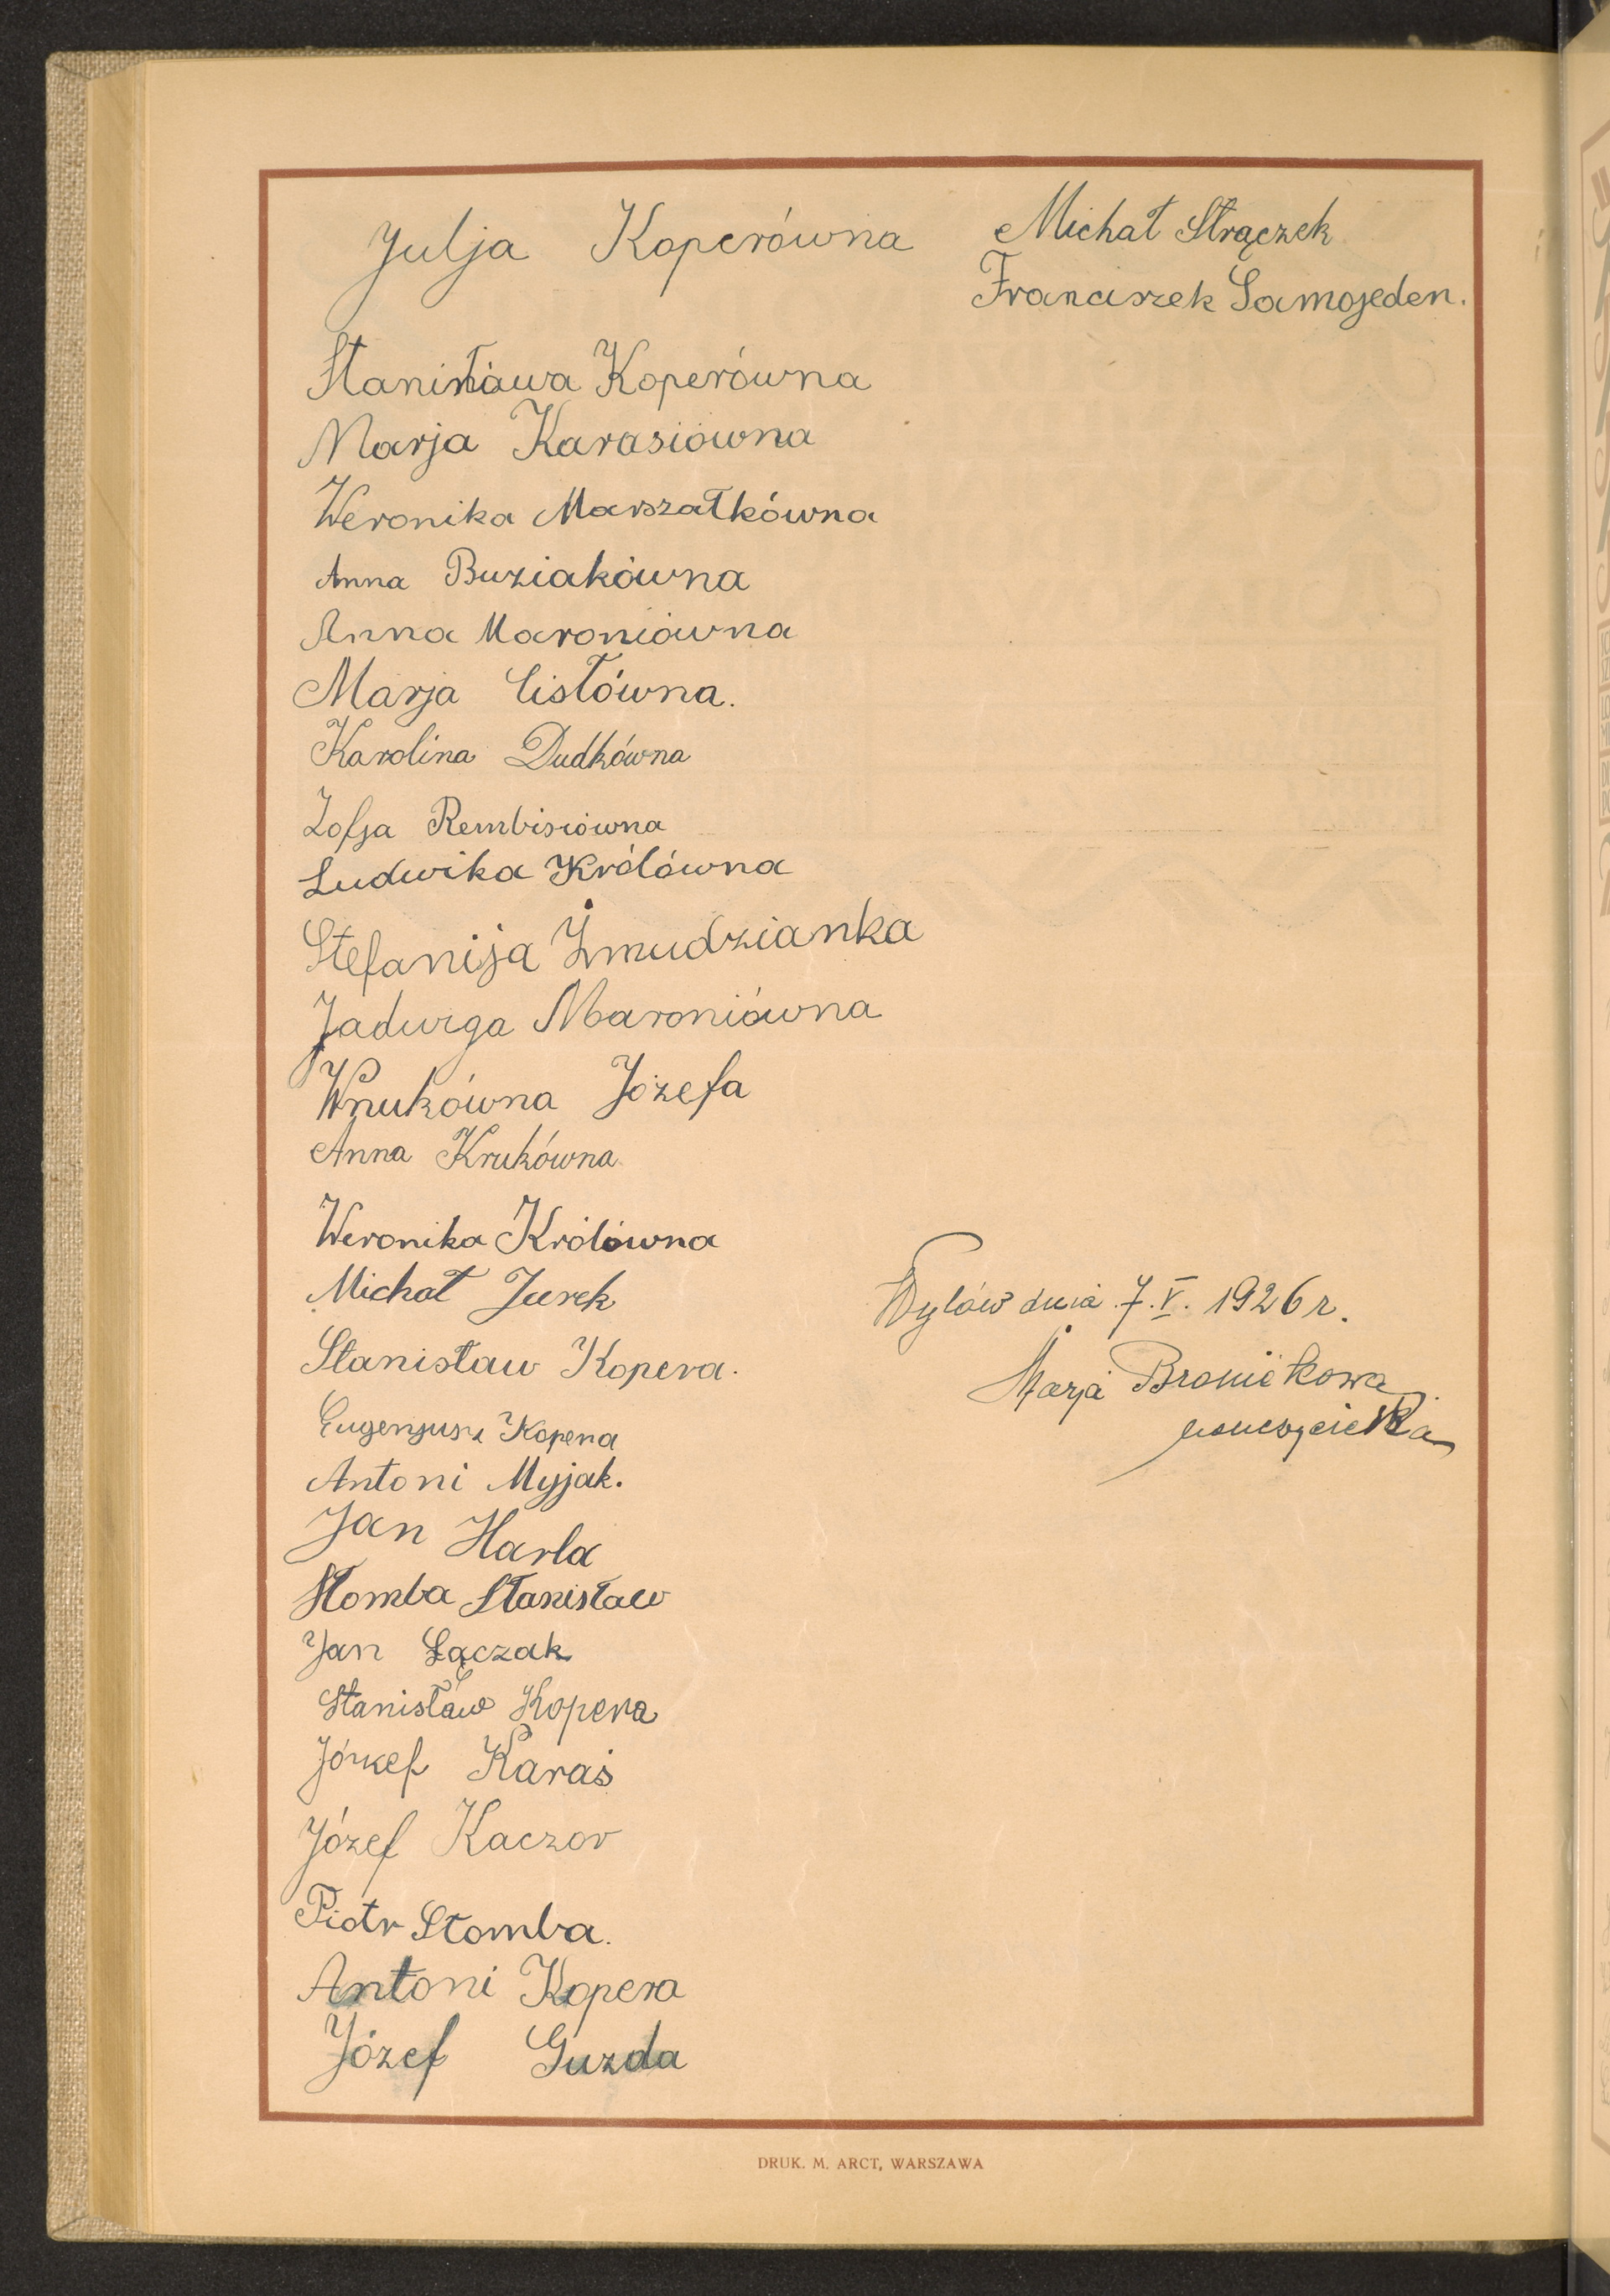 Julja Koperówna
Michał Strączek
Franciszek Samojeden.
Stanisława Koperówna
Marja Karasiówna
Weronika Marszałkówna
Anna Buziakówna
Anna Maroniówna
Marja Cisłówna.
Karolina Dudkówna
Zofja Rembisiówna
Ludwika Królówna
Stefanija Żmudzianka
Jadwiga Maroniówna
Wnukówna Józefa
Anna Krukówna
Weronika Królówna
Michał Jurek
Stanisław Kopera.
Eugenjusz Kopera
Antoni Myjak.
Jan Harla
Słomba Stanisław
Jan Łączak
Stanisław Kopera
Józef Karaś
Józef Kaczor
Piotr Słomba.
Antoni Kopera
Józef Guzda
Wylów dnia 7.V. 1926 r.
Marja Broniekowa
nauczycielka
DRUK. M. ARCT, WARSZAWA